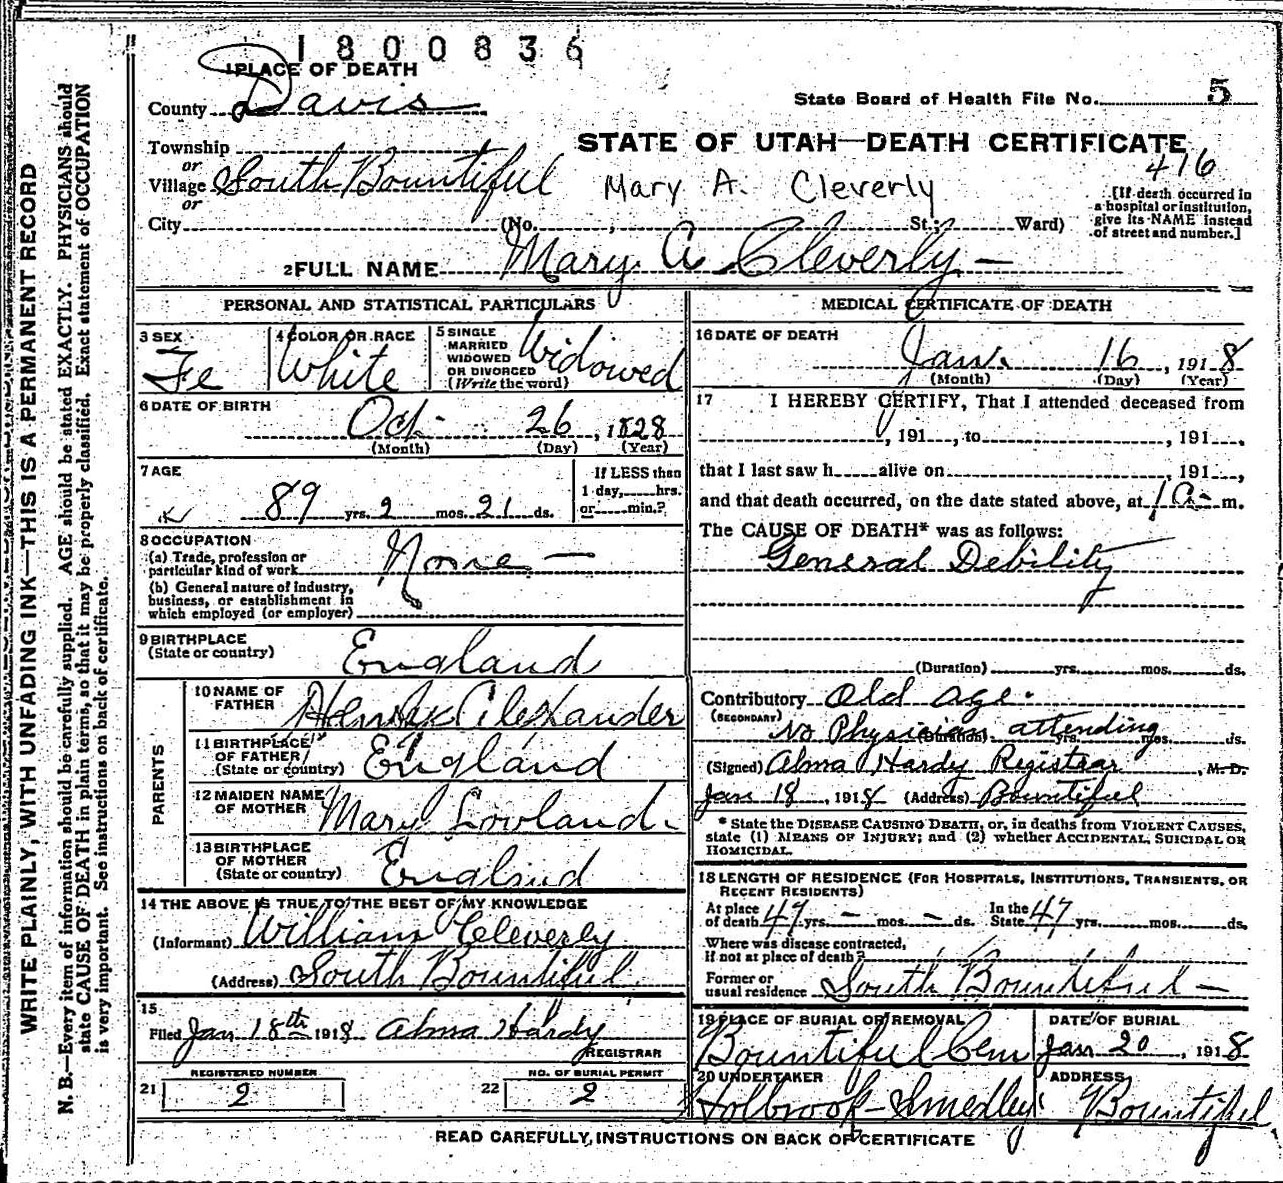 1800836
1 PLACE OF DEATH
County Davis
State Board of Health File No. 5
Township
STATE OF UTAH—DEATH CERTIFICATE
or
416
Village South Bountiful
Mary A. Cleverly
or
[If death occurred in
a hospital or institution,
give its NAME instead
of street and number.]
City (No. , St.; Ward)
2 FULL NAME Mary A Cleverly —
PERSONAL AND STATISTICAL PARTICULARS
3 SEX Fe
4 COLOR OR RACE White
5 SINGLE
MARRIED
WIDOWED
OR DIVORCED
(Write the word) Widowed
6 DATE OF BIRTH
Oct. 26, 1828
(Month) (Day) (Year)
7 AGE
89 yrs. 2 mos. 21 ds.
If LESS than
1 day, hrs.
or min.?
8 OCCUPATION
(a) Trade, profession or
particular kind of work None —
(b) General nature of industry,
business, or establishment in
which employed (or employer)
9 BIRTHPLACE
(State or country) England
PARENTS
10 NAME OF
FATHER Henry Alexander
11 BIRTHPLACE
OF FATHER
(State or country) England
12 MAIDEN NAME
OF MOTHER Mary Lovland.
13 BIRTHPLACE
OF MOTHER
(State or country) England
14 THE ABOVE IS TRUE TO THE BEST OF MY KNOWLEDGE
(Informant) William Cleverly
(Address) South Bountiful
15
Filed Jan 18th 1918 Alma Hardy
REGISTRAR
21 REGISTERED NUMBER 2
22 NO. OF BURIAL PERMIT 2
MEDICAL CERTIFICATE OF DEATH
16 DATE OF DEATH
Jan. 16, 1918
(Month) (Day) (Year)
17 I HEREBY CERTIFY, That I attended deceased from
, 191 , to , 191 ,
that I last saw h alive on , 191 ,
and that death occurred, on the date stated above, at 1 a— m.
The CAUSE OF DEATH* was as follows:
General Debility
(Duration) yrs. mos. ds.
Contributory Old age.
(SECONDARY)
No Physician attending
(Duration) yrs. mos. ds.
(Signed) Alma Hardy Registrar, M. D.
Jan 18, 1918 (Address) Bountiful
* State the DISEASE CAUSING DEATH, or, in deaths from VIOLENT CAUSES,
state (1) MEANS OF INJURY; and (2) whether ACCIDENTAL, SUICIDAL OR
HOMICIDAL.
18 LENGTH OF RESIDENCE (FOR HOSPITALS, INSTITUTIONS, TRANSIENTS, OR
RECENT RESIDENTS)
At place
of death 47 yrs. — mos. — ds. In the
State 47 yrs. mos. ds.
Where was disease contracted,
if not at place of death?
Former or
usual residence South Bountiful —
19 PLACE OF BURIAL OR REMOVAL
Bountiful Cem
DATE OF BURIAL
Jan 20, 1918
20 UNDERTAKER
Holbrook-Smedley
ADDRESS
Bountiful
READ CAREFULLY, INSTRUCTIONS ON BACK OF CERTIFICATE
WRITE PLAINLY, WITH UNFADING INK—THIS IS A PERMANENT RECORD
N. B.—Every item of information should be carefully supplied. AGE should be stated EXACTLY. PHYSICIANS should
state CAUSE OF DEATH in plain terms, so that it may be properly classified. Exact statement of OCCUPATION
is very important. See instructions on back of certificate.